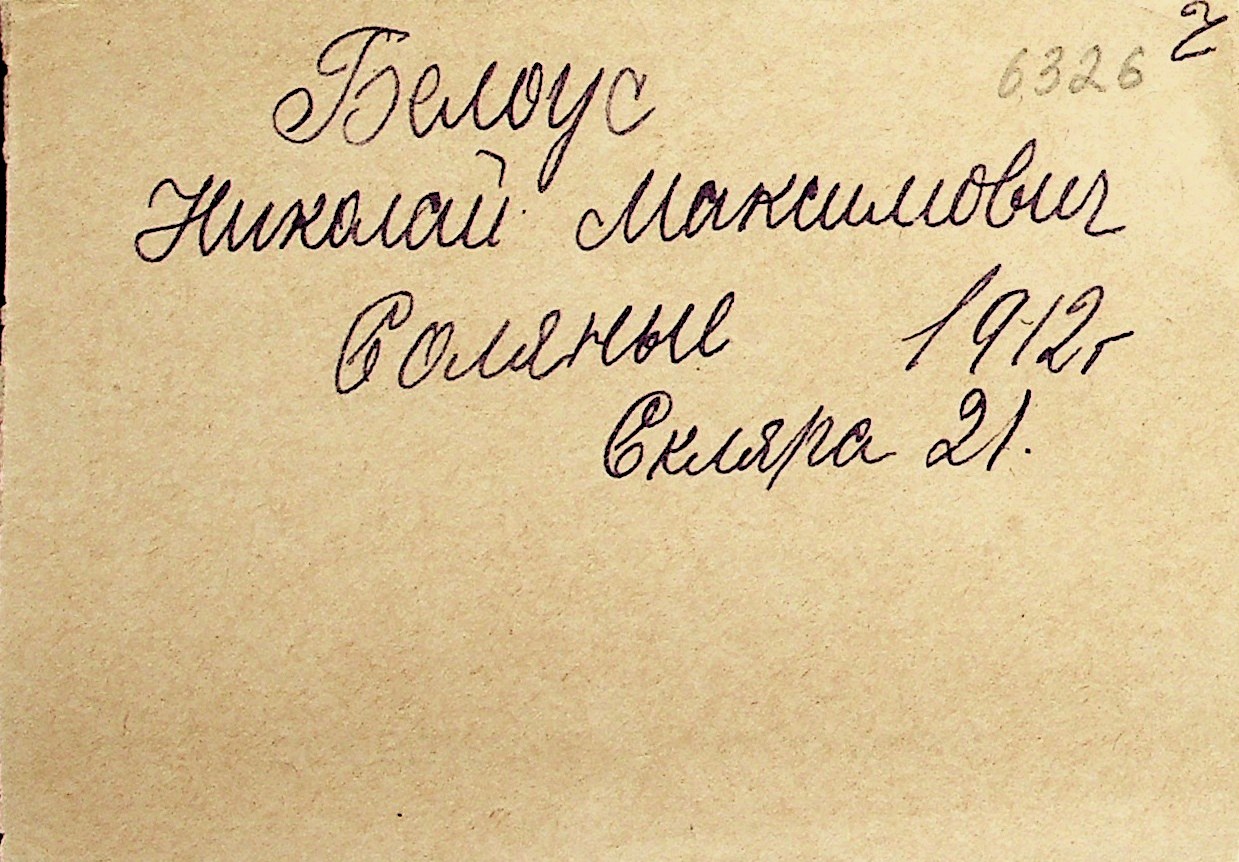 6326
Белоус
Николай Максимович
Соляные 1912г
Скляра 21.